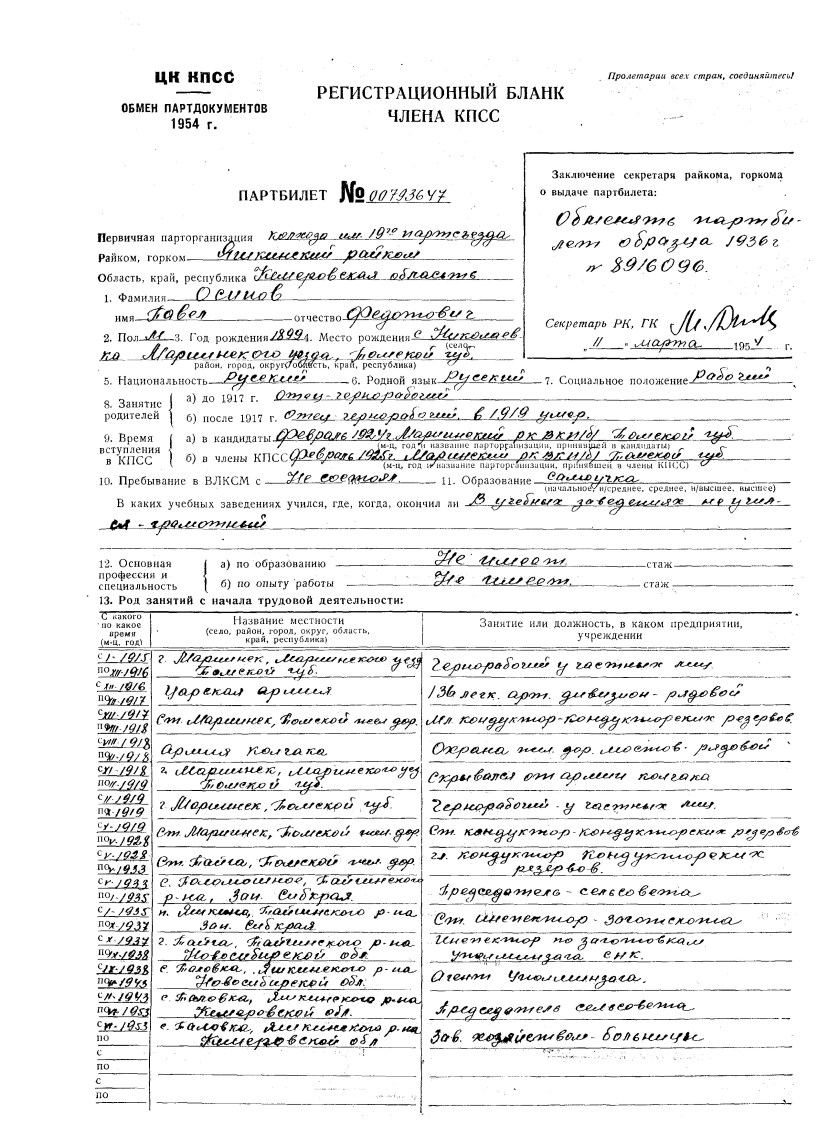 ЦК КПСС
ОБМЕН ПАРТДОКУМЕНТОВ
1954 г.
Пролетарии всех стран, соединяйтесь!
РЕГИСТРАЦИОННЫЙ БЛАНК
ЧЛЕНА КПСС
ПАРТБИЛЕТ № 00793647
Заключение секретаря райкома, горкома
о выдаче партбилета:
Обменять партби-
лет образца 1936 г
№ 8916096.
Секретарь РК, ГК
"11" марта 1954 г.
Первичная парторганизация колхоза им. 19го партсъезда
Райком, горком Яшкинский райком
Область, край, республика Кемеровская область
1. Фамилия Осипов
имя Павел отчество Федотович
2. Пол М 3. Год рождения 1899 4. Место рождения с Николаев-
(село,
ка Мариинского уезда, Томской губ.
район, город, округ, область, край, республика)
5. Национальность Русский 6. Родной язык Русский 7. Социальное положение Рабочий
8. Занятие родителей
а) до 1917 г. Отец-чернорабочий
б) после 1917 г. Отец чернорабочий, в 1919 умер.
9. Время вступления в КПСС
а) в кандидаты Февраль 1924 г. Мариинский рк ВКП/б/ Томской губ.
(м-ц, год и название парторганизации, принявшей в кандидаты)
б) в члены КПСС Февраль 1925г. Мариинский рк ВКП/б/ Томской губ
(м-ц, год и название парторганизации, принявшей в члены КПСС)
10. Пребывание в ВЛКСМ с Не состоял 11. Образование самоучка
(начальное, н/среднее, среднее, н/высшее, высшее)
В каких учебных заведениях учился, где, когда, окончил ли В учебных заведениях не учил-
ся - грамотный
12. Основная профессия и специальность
а) по образованию Не имеет стаж
б) по опыту работы Не имеет. стаж
13. Род занятий с начала трудовой деятельности:
С какого по какое время (м-ц, год)
Название местности
(село, район, город, округ, область, край, республика)
Занятие или должность, в каком предприятии, учреждении
с I-1915 по XII-1916 г. Мариинск, Мариинского уезд Томской губ. Чернорабочий у частных лиц
с XII-1916 по XII-1917 Царская армия 136 легк. арт. дивизион - рядовой
с XII-1917 по VIII-1918 Ст. Мариинск, Томской жел дор. Мл кондуктор-кондукторских резервов
с VIII-1918 по XI-1918 Армия Колчака Охрана жел. дор. мостов - рядовой
с XI-1918 по II-1919 г. Мариинск, Маринского уез Томской губ. Скрывался от армии колчака
с II-1919 по X-1919 г. Мариинск, Томской губ. Чернорабочий - у частных лиц.
с X-1919 по V-1928 Ст. Мариинск, Томской жел. дор. Ст. кондуктор-кондукторских резервов
с V-1928 по V-1933 Ст. Тайга, Томской жел. дор. гл. кондуктор Кондукторских резервов.
с V-1933 по I-1935 с. Поломошное, Тайгинского р-на, Зап. Сибкрая. Председатель - сельсовета
с I-1935 по X-1937 п. Яшкино, Тайгинского р-на Зап. Сибкрая Ст. инспектор - Заготскота
с X-1937 по IX-1938 г. Тайга, Тайгинского р-на Новосибирской обл. Инспектор по заготовкам уполминзага СНК.
с IX-1938 по II-1943 с. Паловка, Яшкинского р-на Новосибирской обл. Агент Уполминзага.
с II-1943 по VI-1953 с. Паловка, Яшкинского р-на Кемеровской обл. Председатель сельсовета
с VI-1953 по с. Паловка, Яшкинского р-на Кемеровской обл Зав. хозяйством - больницы
с
по
с
по